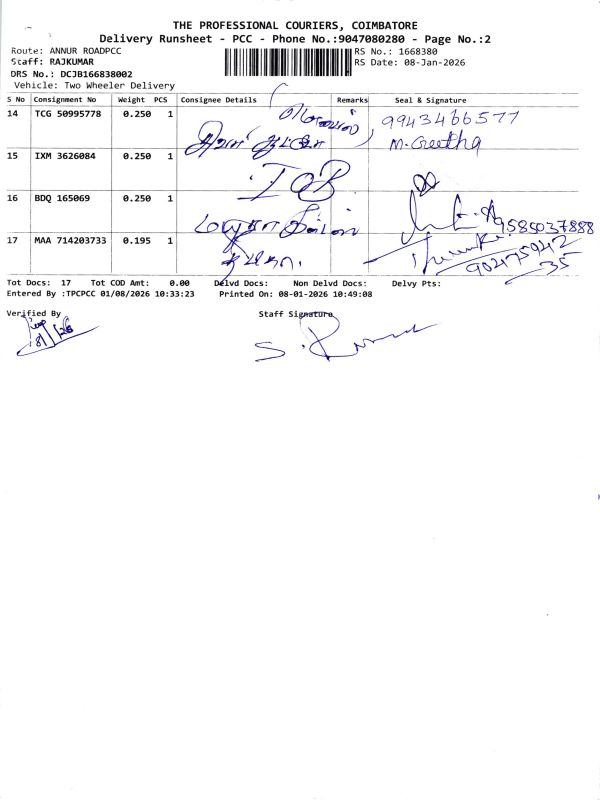 THE PROFESSIONAL COURIERS, COIMBATORE
Delivery Runsheet - PCC - Phone No.:9047080280 - Page No.:2
Route: ANNUR ROADPCC
RS No.: 1668380
Staff: RAJKUMAR
RS Date: 08-Jan-2026
DRS No.: DCJB166838002
Vehicle: Two Wheeler Delivery
S No Consignment No Weight PCS Consignee Details Remarks Seal & Signature
14 TCG 50995778 0.250 1 9943466577
M. Geetha
15 IXM 3626084 0.250 1 IOB
16 BDQ 165069 0.250 1 9585037888
17 MAA 714203733 0.195 1
35
Tot Docs: 17 Tot COD Amt: 0.00 Delvd Docs: Non Delvd Docs: Delvy Pts:
Entered By :TPCPCC 01/08/2026 10:33:23 Printed On: 08-01-2026 10:49:08
Verified By Staff Signature
8/1/26